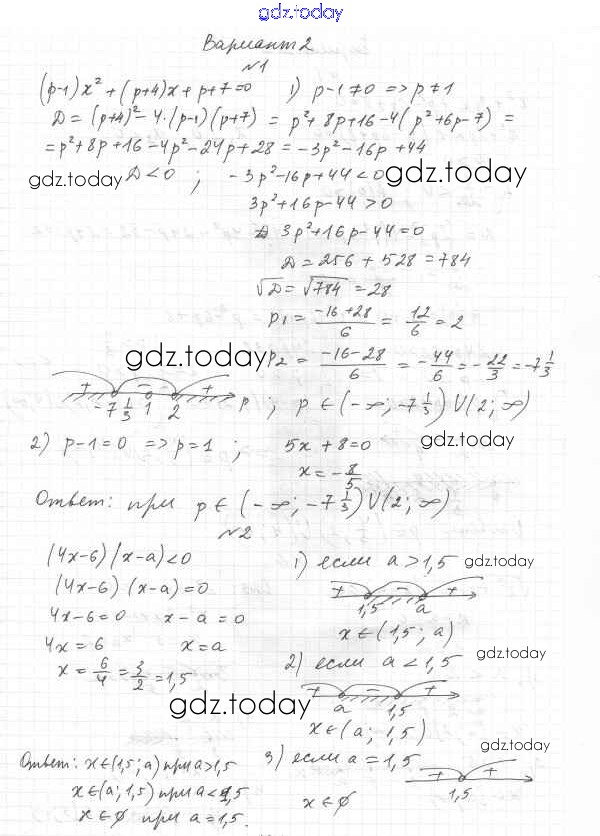 gdz.today
Вариант 2
№1
(p-1)x² + (p+4)x + p+7=0   1) p-1≠0 => p≠1
D = (p+4)² - 4·(p-1)(p+7) = p²+8p+16-4(p²+6p-7) =
= p²+8p+16-4p²-24p+28 = -3p²-16p+44
gdz.today D<0 ; -3p²-16p+44<0 gdz.today
3p²+16p-44>0
3p²+16p-44=0
D = 256 + 528 = 784
√D = √784 = 28
p₁ = (-16+28)/6 = 12/6 = 2
gdz.today p₂ = (-16-28)/6 = -44/6 = -22/3 = -7 1/3
+ - +
-7 1/3 1 2 p ; p ∈ (-∞; -7 1/3) U (2; ∞)
2) p-1=0 => p=1 ; 5x+8=0 gdz.today
x = -8/5
Ответ: при p ∈ (-∞; -7 1/3) U (2; ∞)
№2
(4x-6)(x-a)<0   1) если a>1,5 gdz.today
(4x-6)(x-a)=0   + - +
4x-6=0   x-a=0   1,5 a
4x=6   x=a   x∈(1,5; a)
x = 6/4 = 3/2 = 1,5   2) если a<1,5 gdz.today
+ - +
gdz.today a 1,5
x∈(a; 1,5)
Ответ: x∈(1,5; a) при a>1,5   3) если a=1,5 gdz.today
x∈(a; 1,5) при a<1,5   + +
1,5
x∈∅ при a=1,5.   x∈∅